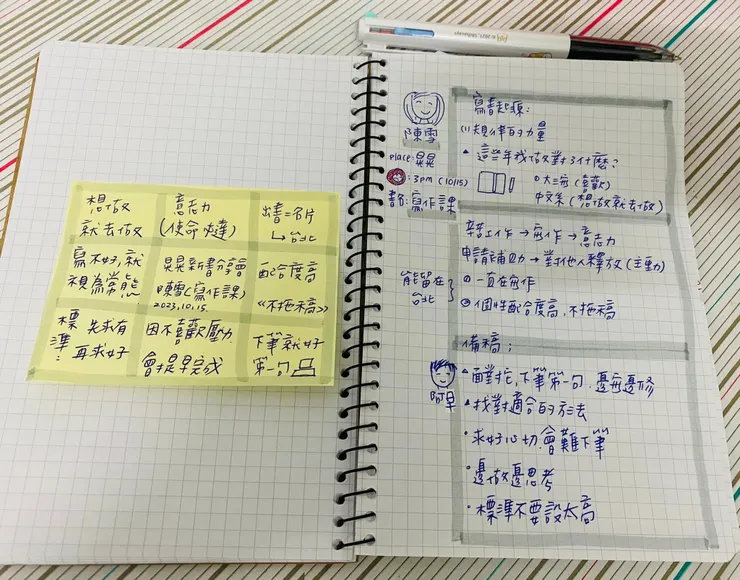 想做
就去做
意志力
(使命必達)
出書=名片
↳台北
寫不好,就
視為常態
晃晃新書分享會
陳雪(寫作課)
2023.10.15.
配合度高
《不拖稿》
標準:
先求有
再求好
因不喜歡壓力
會提早完成
下筆就好
第一句
陳雪
place:晃晃
:3pm (10/15)
書:寫作課
寫書起源:
(1)規律的力量
▲這些年我做對了什麼?
①大三寫(喜歡)
中文系(想做就去做)
辭工作→寫作→意志力
申請補助→對他人釋放(主動)
能留在
台北
①一直在寫作
②個性配合度高,不拖稿
備稿:
阿早
▲面對它,下筆第一句.邊寫邊修
▲找對適合的方法
•求好心切.會難下筆
•邊做邊思考
•標準不要設太高